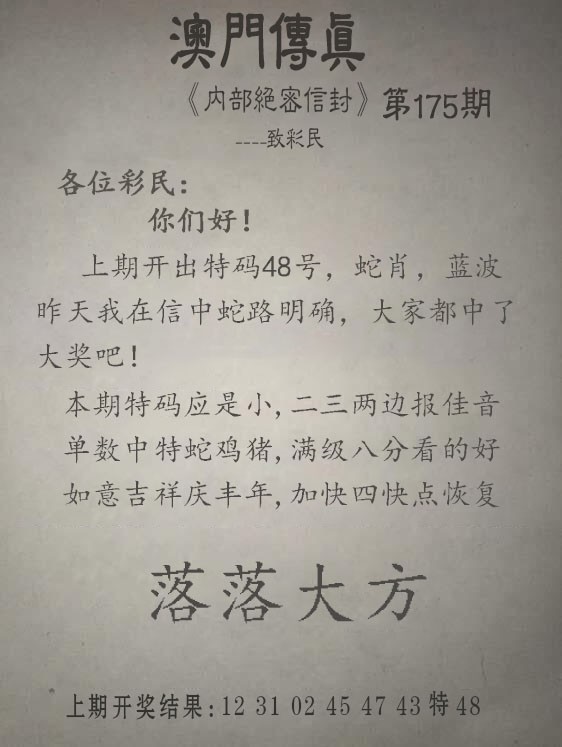 澳門傳眞
《内部絕密信封》第175期
----致彩民
各位彩民:
你们好!
上期开出特码48号，蛇肖，蓝波
昨天我在信中蛇路明确，大家都中了
大奖吧!
本期特码应是小,二三两边报佳音
单数中特蛇鸡猪,满级八分看的好
如意吉祥庆丰年,加快四快点恢复
落落大方
上期开奖结果:12 31 02 45 47 43 特 48